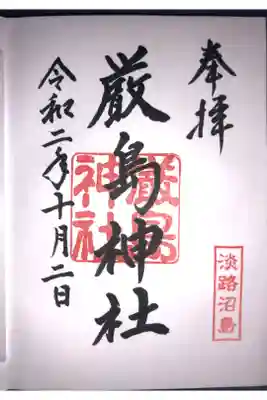 奉拝
淡路沼島
厳島神社
厳島
神社
令和二年十月二日